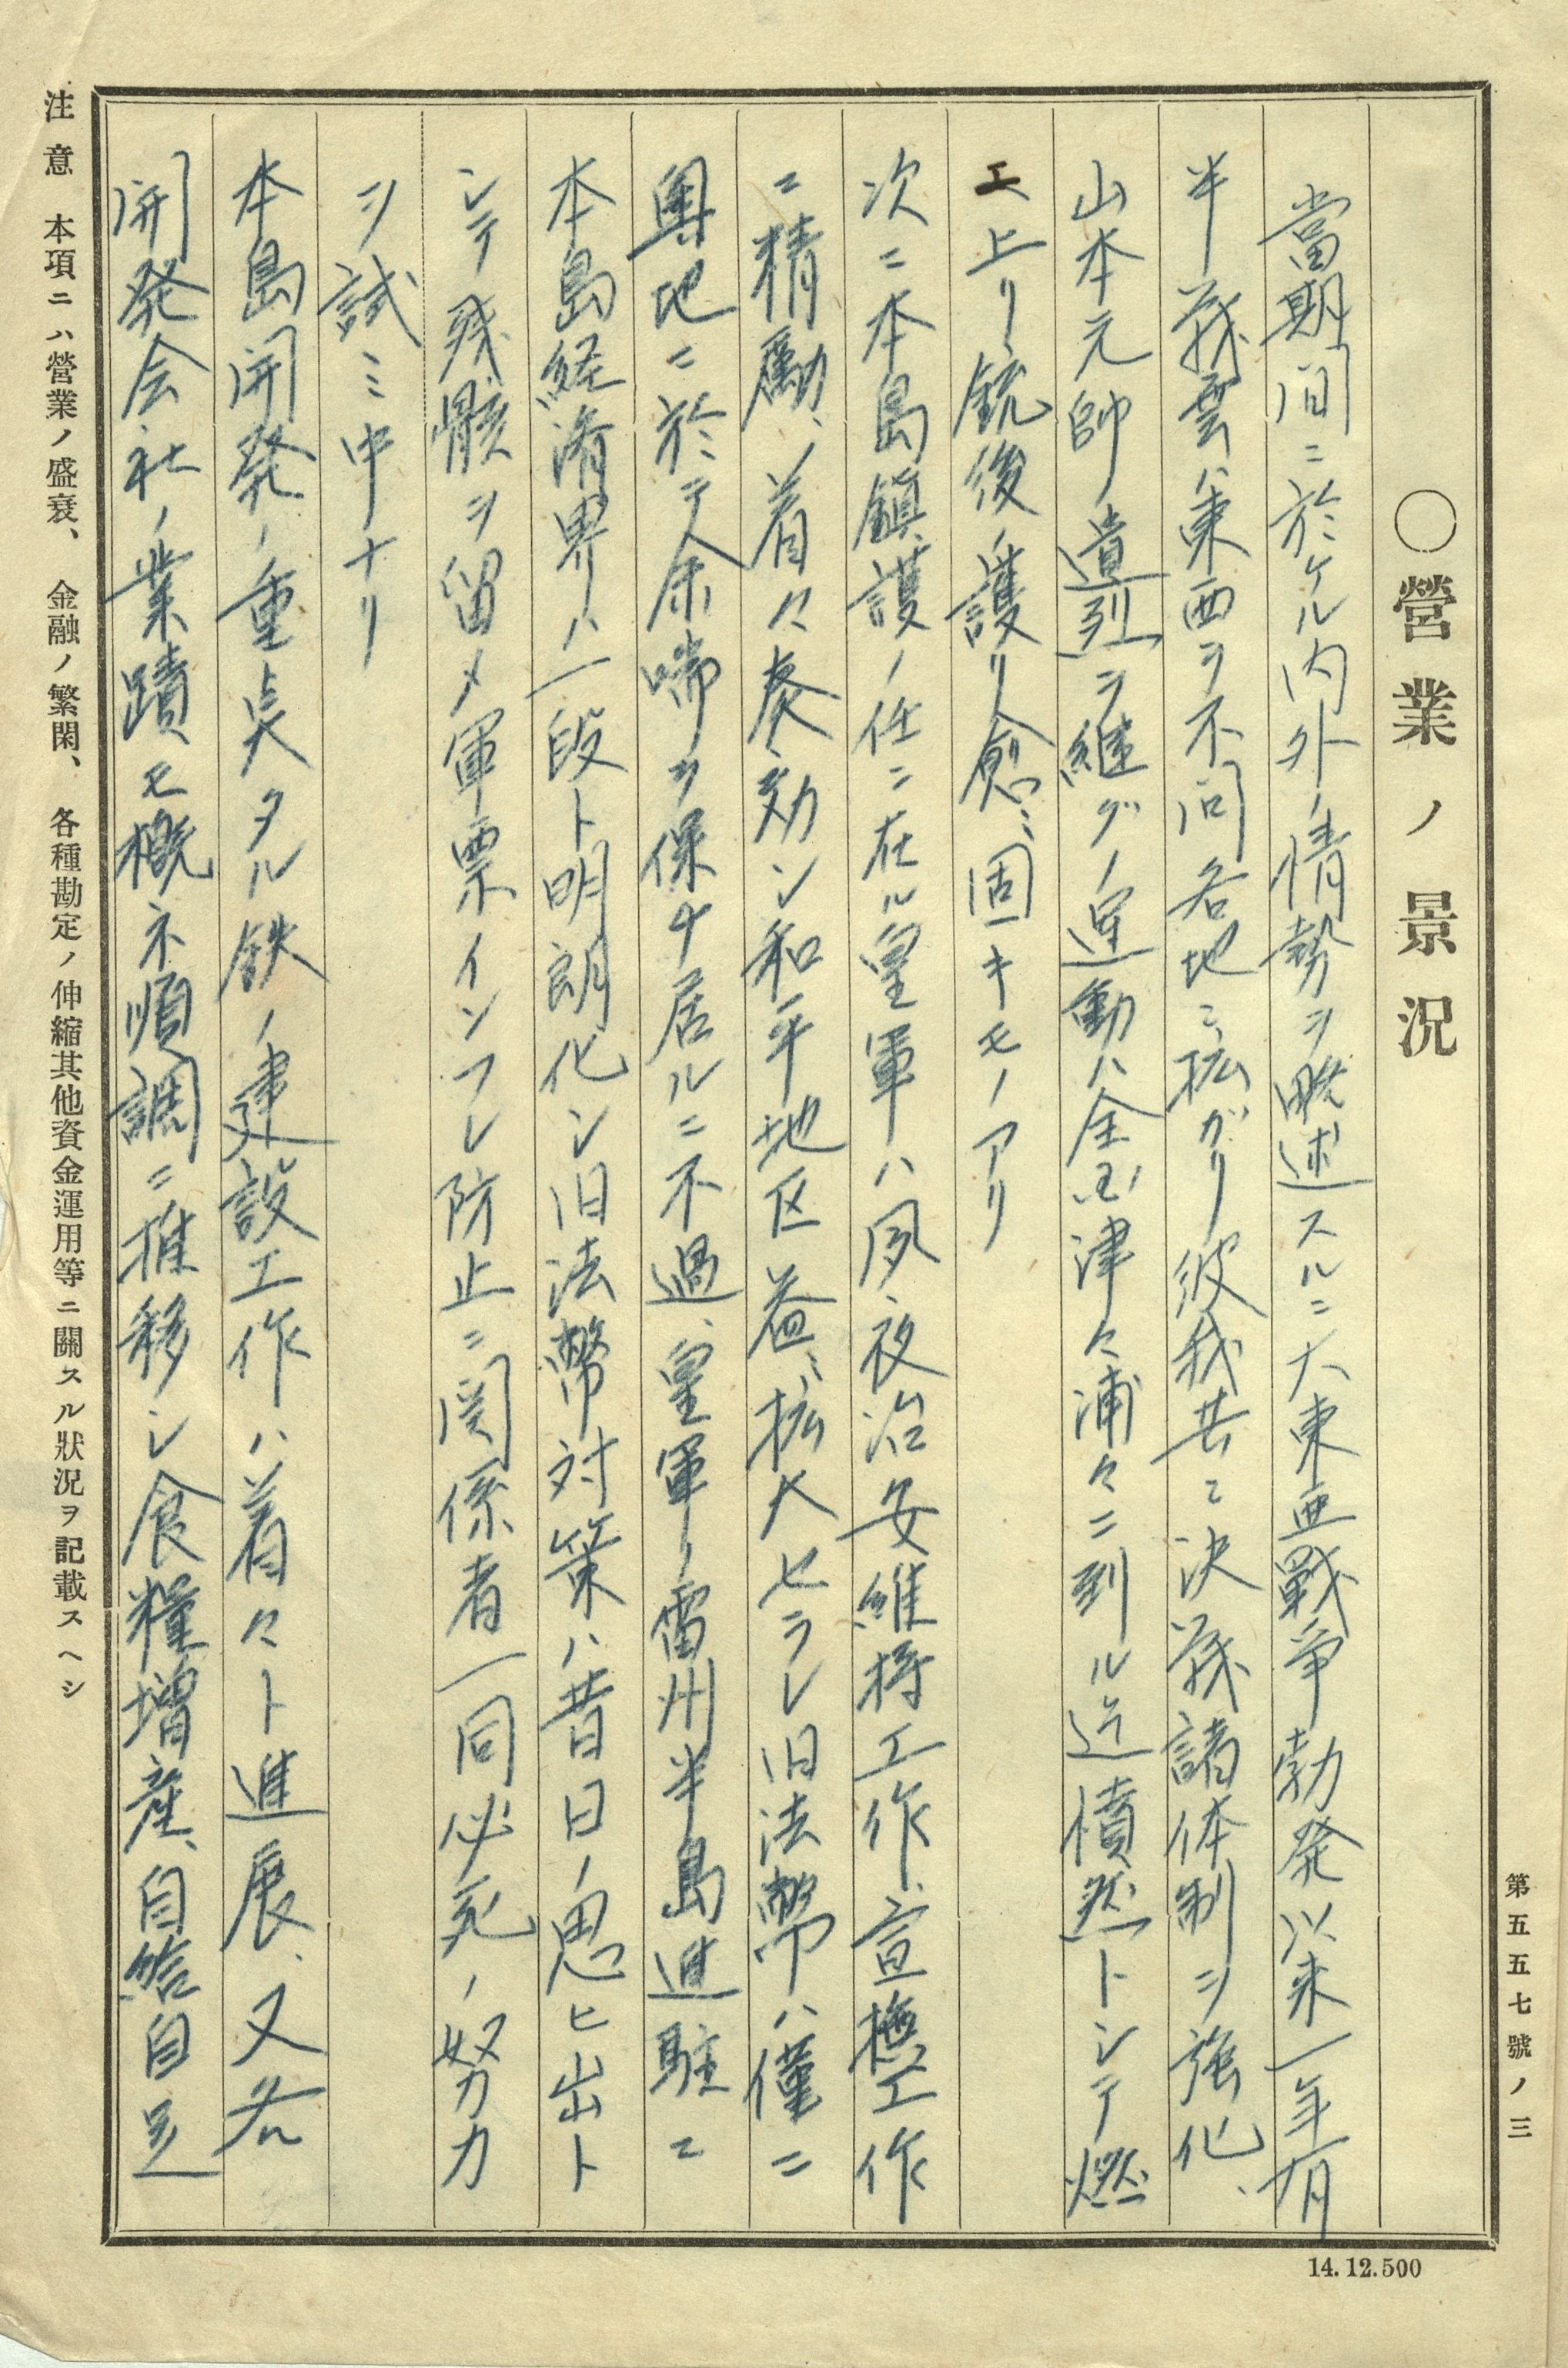 第五五七號ノ三
〇營業ノ景況
當期間ニ於ケル内外ノ情勢ヲ略述スルニ大東亜戦争勃発以来一年有
半戦雲ハ東西ヲ不問各地ニ拡ガリ彼我共ニ決戦諸体制ヲ強化、
山本元帥ノ遺烈ヲ継グノ運動ハ全国津々浦々ニ到ル迄憤然トシテ燃
エ上リ、銃後ノ護リ愈ミ固キモノアリ
次ニ本島鎮護ノ任ニ在ル皇軍ハ夙夜治安維持工作、宣撫工作
ニ精励、着々奏効シ和平地区益ミ拡大セラレ旧法幣ハ僅ニ
奥地ニ於テ余喘ヲ保チ居ルニ不過、皇軍ノ雷州半島進駐ニ
本島経済界ハ一段ト明朗化シ旧法幣対策ハ昔日ノ思ヒ出ト
シテ残骸ヲ留メ軍票インフレ防止ニ関係者一同必死ノ努力
ヲ試ミ中ナリ
本島開発ノ重点タル鉄ノ建設工作ハ着々ト進展、又各
開発会社ノ業蹟モ概ネ順調ニ推移シ食糧増産、自給自足
注意 本項ニハ營業ノ盛衰、金融ノ繁閑、各種勘定ノ伸縮其他資金運用等ニ關スル狀況ヲ記載スヘシ
14.12.500